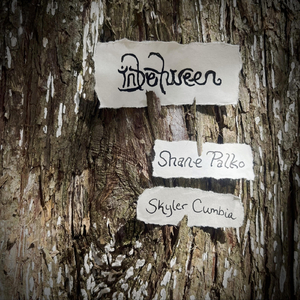 inbetween
Shane Palko
Skyler Cumbia